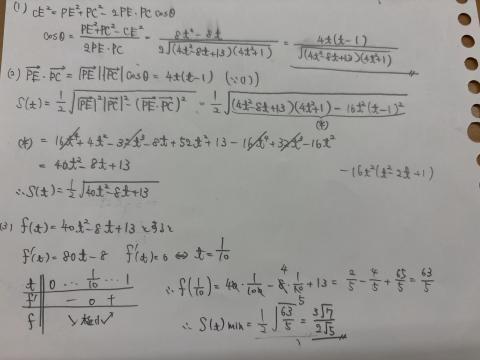 (1) CE² = PE² + PC² - 2PE・PC cosθ
cosθ = (PE² + PC² - CE²)/(2PE・PC) = (8t² - 8t)/(2√((4t²-8t+13)(4t²+1))) = 4t(t-1)/√((4t²-8t+13)(4t²+1))
(2) PE→・PC→ = |PE→||PC→|cosθ = 4t(t-1) (∵(1))
S(t) = 1/2 √(|PE→|²|PC→|² - (PE→・PC→)²) = 1/2 √((4t²-8t+13)(4t²+1) - 16t²(t-1)²)
(*)
(*) = 16t⁴ + 4t² - 32t³ - 8t + 52t² + 13 - 16t⁴ + 32t³ - 16t²
= 40t² - 8t + 13
-16t²(t²-2t+1)
∴ S(t) = 1/2 √(40t² - 8t + 13)
(3) f(t) = 40t² - 8t + 13 とすると
f'(t) = 80t - 8 f'(t) = 0 ⇔ t = 1/10
t 0 … 1/10 … 1
f' - 0 +
f ↘ ↗
∴ f(1/10) = 40・1/100 - 8・1/10 + 13 = 2/5 - 4/5 + 65/5 = 63/5
∴ S(t)min = 1/2 √(63/5) = 3√7/2√5